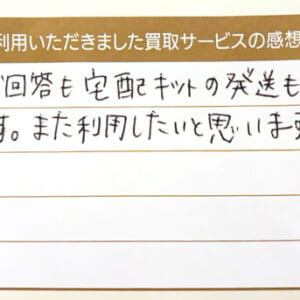 利用いただきました買取サービスの感想
回答も宅配キットの発送も
す。また利用したいと思います